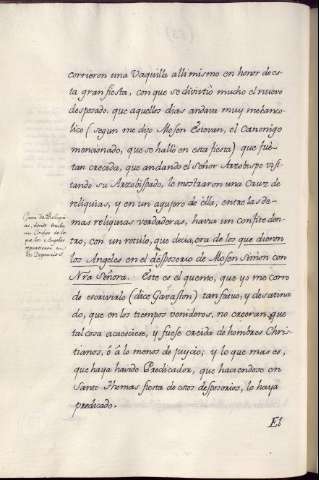 corrieron una Vaquilla alli mismo en honor de es-
ta gran fiesta, con que se divirtio mucho el nuevo
desposado, que aquellos dias andava muy melanco-
lico (segun me dijo Mosen Estevan, el Canonigo
mencionado, que se halló en esta fiesta) que fue
tan creida, que andando el señor Arzobispo visi-
tando su Arzobispado, lo mostraron una Cruz de
reliquias, y en un agujero de ella, entre las de-
mas reliquias verdaderas, havia un confite den-
tro, con un rotulo, que decia, era de los que dieron
los Angeles en el desposorio de Mosen Simon con
Nra Señora. Este es el quento, que yo me corro
de escrivirlo (dice Gavaston) tan fatuo, y desatina
do, que en los tiempos venideros, no creeran, que
tal cosa acaeciese, y fuese creida de hombres Chris-
tianos, ó á lo menos de juycio; y lo que mas es,
que haya havido Predicador, que haciendose en
Santo Thomas fiesta de estos desposorios, lo haya
predicado.
El
Cruz de Reliqui-
as, donde
un Confite de los
que los Angeles
repartieron en
los Desposorios